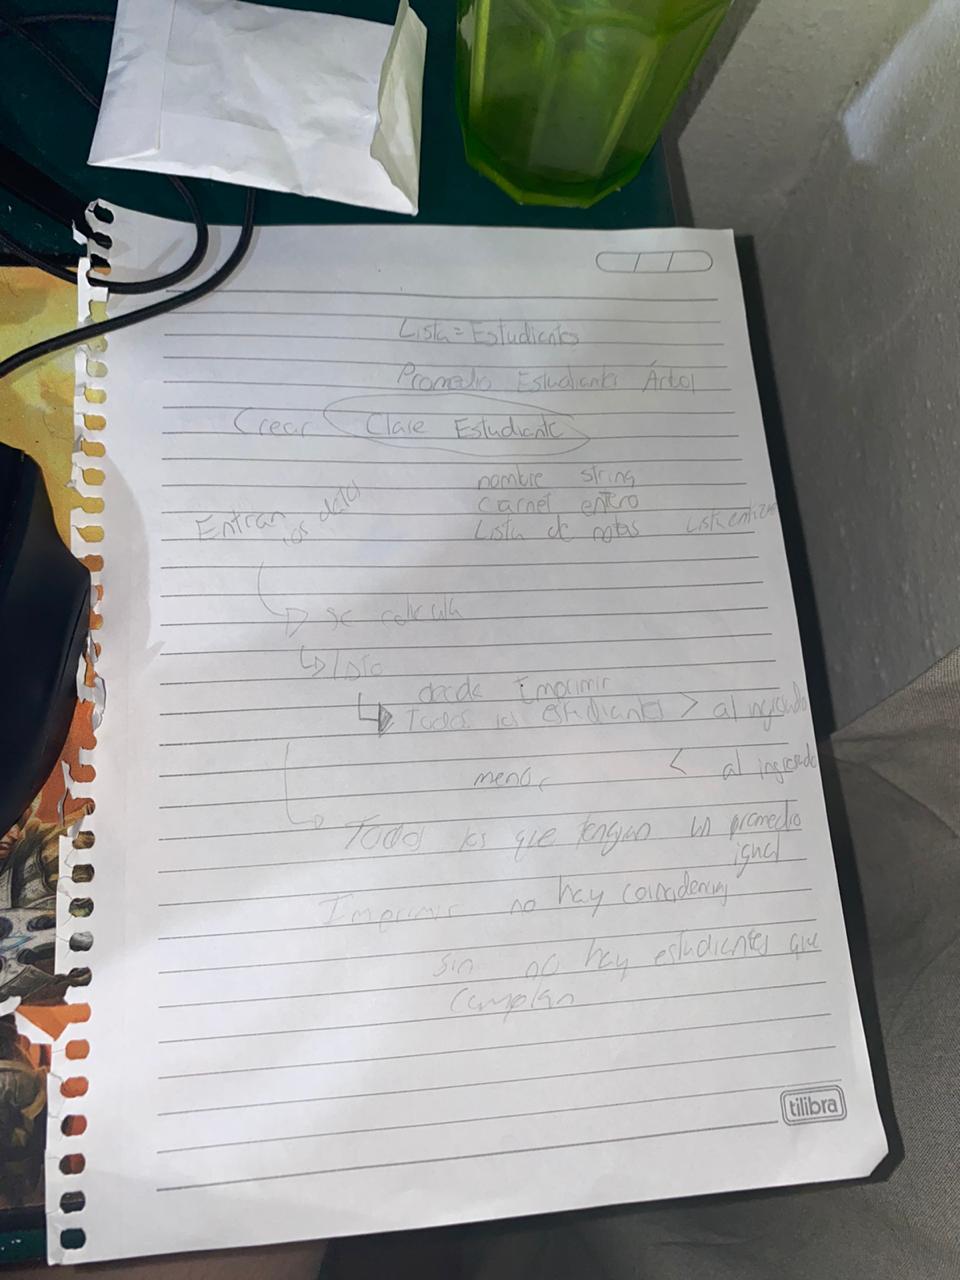 Lista = Estudiantes
Promedio Estudiante Árbol
Crear Clase Estudiante
nombre string
Carnet entero
Entran los datos
Lista de notas
se calcula
desde Imprimir
Todos los estudiantes > al ingresado
menor < al ingresado
Todos los que tengan un promedio
igual
Imprimir no hay coincidencias
sin no hay estudiantes que
cumplan
tilibra